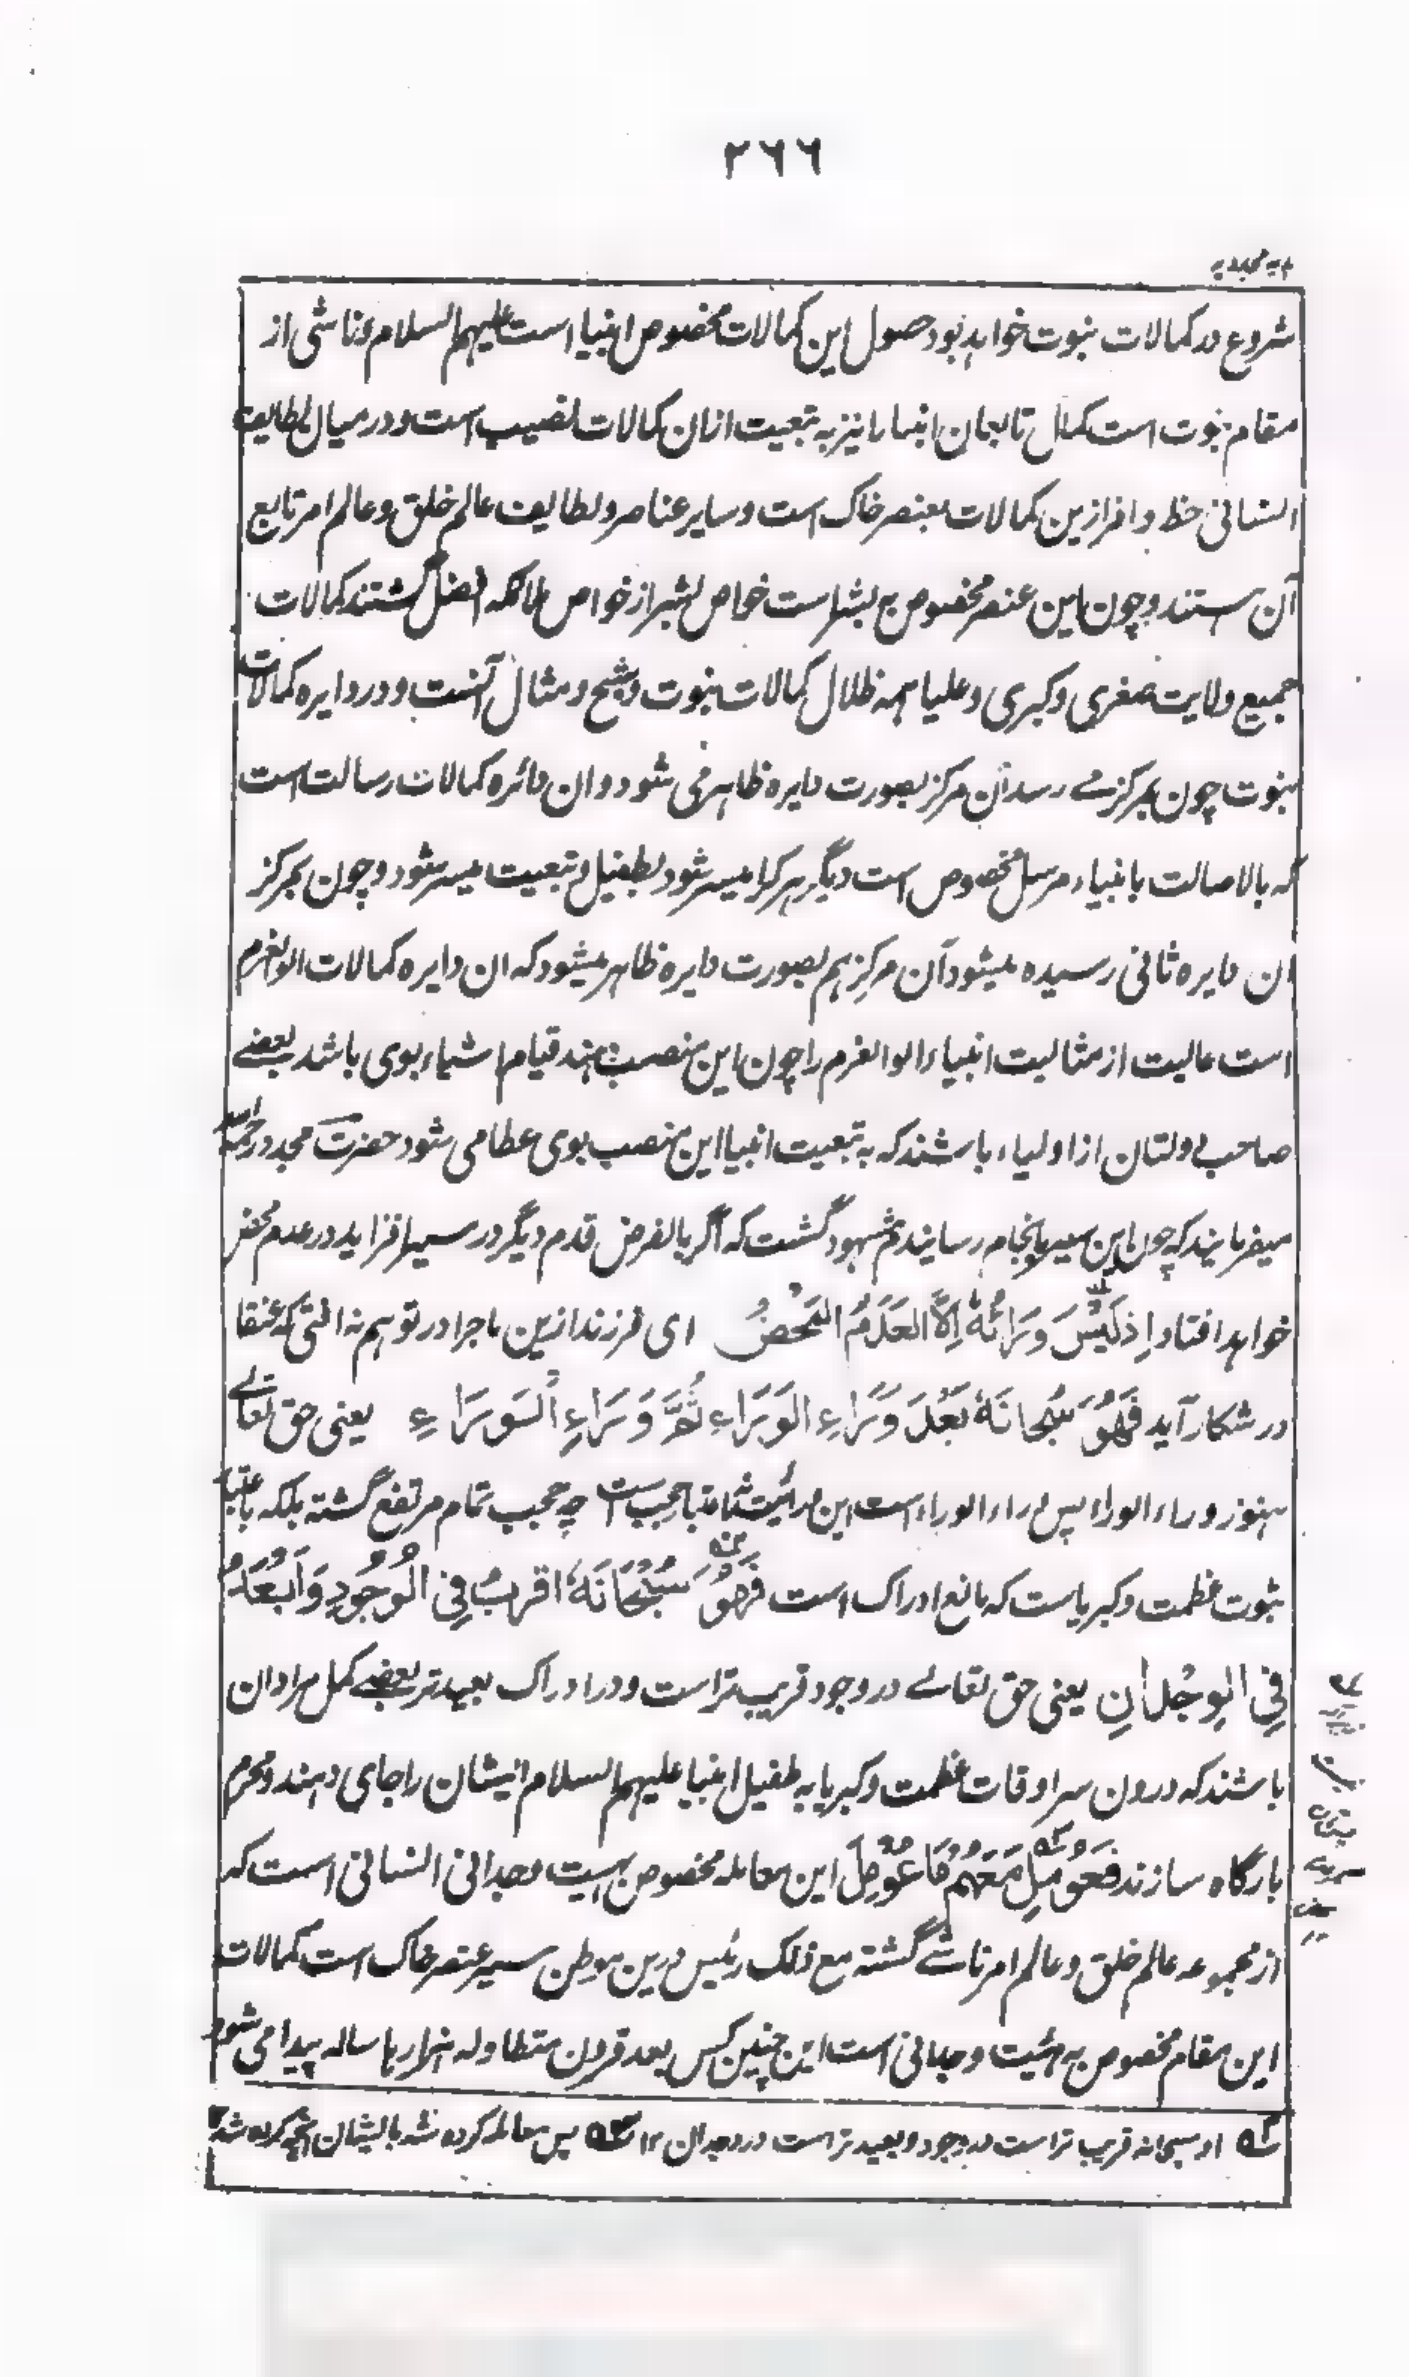 ٢٦٦
شروع در کمالات نبوت خواهد بود حصول این کمالات مخصوص انبیا است علیهم السلام و ناشی از
مقام نبوت است کمل تابعان انبیا را نیز به تبعیت ازان کمالات نصیب است و در میان لطایف
انسانی حظ وافر ازین کمالات بعنصر خاک است و سایر عناصر و لطایف عالم خلق و عالم امر تابع
آن ستند و چون این عنصر مخصوص به بشر است خواص بشر از خواص ملائکه افضل گشتند کمالات
جمیع ولایت صغری و کبری و علیا همه ظلال کمالات نبوت و شبح و مثال آنست و در دایره کمالات
نبوت چون بمرکز مے رسد آن مرکز بصورت دایره ظاهر می شود و ان دائره کمالات رسالت است
که بالاصالت بانبیاء مرسل مخصوص است دیگر هر کرا میسر شود بطفیل و تبعیت میسر شود و چون بمرکز
ان دایره ثانی رسیده میشود آن مرکز هم بصورت دایره ظاهر میشود که ان دایره کمالات الوالعزم
است عالیت از مثالیت انبیاء الوالعزم را چون این منصب دهند قیام اشیاء بوی باشد بعضے
صاحب دولتان از اولیاء باشند که به تبعیت انبیا این منصب بوی عطا می شود حضرت مجدد رحمه الله
میفرمایند که چون این سیر بانجام رسانیدم مشهود گشت که اگر بالفرض قدم دیگر در سیر افزاید در عدم محض
خواهد افتاد اِذ لَیْسَ وَرَائَهٗ اِلاَّ العَدَمُ المَحْضُ ای فرزند ازین ماجرا در توهم نه افتی که عنقا
در شکار آید فَهُوَ سُبْحانَهٗ بَعْدَ وَرَاءِ الوَرَاءِ ثُمَّ وَرَاءِ الْوَرَاءِ یعنی حق تعالے
هنوز وراء الوراء پس وراء الوراء است این وراثیت نه باعتبار حجب است چه حجب تمام مرتفع گشته بلکه باعتبار
ثبوت عظمت و کبریاست که مانع ادراک است فَهُوَ سُبْحَانَهٗ اقربُ فِی الْوُجُودِ وَاَبْعَدُ
فِی الْوِجْدَانِ یعنی حق تعالے در وجود قریب تر است و در ادراک بعید تر بعضے کمل مرادان
باشند که درون سرادقات عظمت و کبریا به طفیل انبیا علیهم السلام ایشان را جای دهند و محرم
بارگاه سازند فَعُوْمِلَ مَعَهُمْ مَاعُوْمِلَ این معامله مخصوص بهیت وحدانی انسانی است که
از مجموعه عالم خلق و عالم امر ناشے گشته مع ذلک رئیس درین موطن سیر عنصر خاک است کمالات
این مقام مخصوص به هئیت وحدانی است این چنین کس بعد قرون متطاوله هزارها ساله پیدا می شود
او سبحانه قریب تر است در وجود و بعید تر است در وجدان ١٢ پس معامله کرده شد بایشان انچه کرده شد